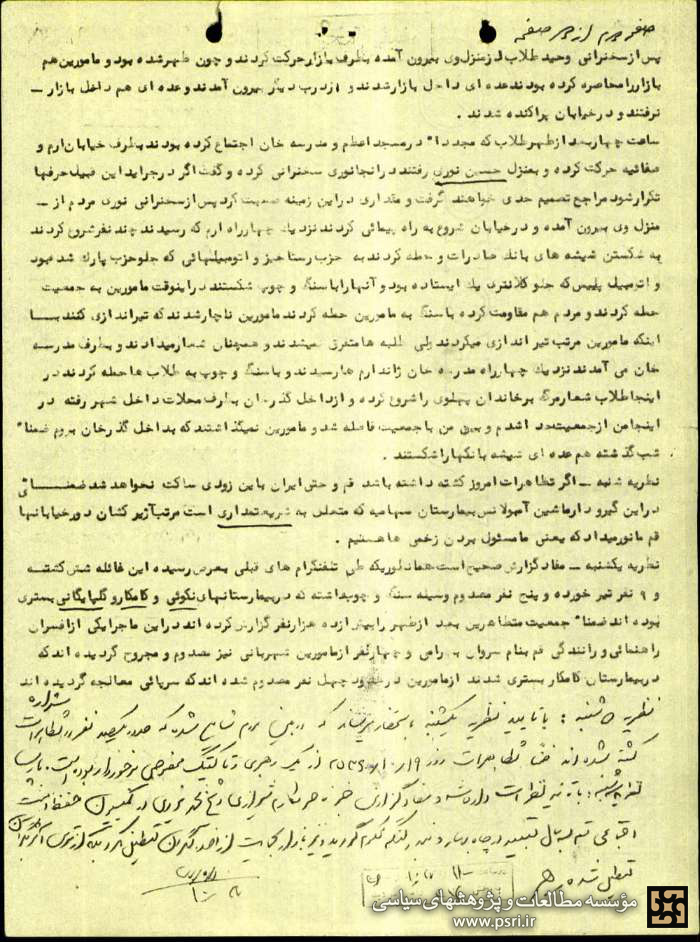 صفحه دوم از دو صفحه
پس از سخنرانی وحید طلاب از منزل وی بیرون آمده بطرف بازار حرکت کردند و چون ظهر شده بود و مامورین هم
بازار را محاصره کرده بودند عده ای داخل بازار شدند و از درب دیگر بیرون آمدند و عده ای هم داخل بازار ــ
نرفتند و در خیابان پراکنده شدند .
ساعت چهار بعد از ظهر طلاب که مجدداً در مسجد اعظم و مدرسه خان اجتماع کرده بودند بطرف خیابان ارم و
صفائیه حرکت کرده و بمنزل حسین نوری رفتند در آنجا نوری سخنرانی کرده و گفت اگر در جراید این قبیل حرفها
تکرار شود مراجع تصمیم جدی خواهند گرفت و مقداری در این زمینه صحبت کرد پس از سخنرانی نوری مردم از ــ
منزل وی بیرون آمده و در خیابان شروع به راه پیمائی کردند نزدیك چهارراه ارم که رسیدند چند نفر شروع کردند
به شکستن شیشه های بانك صادرات و حمله کردند به حزب رستاخیز و اتومبیلهائی که جلو حزب پارك شده بود
و اتومبیل پلیس که جلو کلانتری یك ایستاده بود و آنها را با سنگ و چوب شکستند در اینوقت مامورین به جمعیت
حمله کردند و مردم هم مقاومت کرده با سنگ به مامورین حمله کردند مامورین ناچار شدند که تیراندازی کنند بــا
اینکه مامورین مرتب تیر اندازی میکردند ولی طلبه ها متفرق نمیشدند و همچنان شعار میدادند و بطرف مدرسه
خان می آمدند نزدیك چهارراه مدرسه خان ژاندارم ها رسیدند و با سنگ و چوب به طلاب ها حمله کردند در
اینجا طلاب شعار مرگ بر خاندان پهلوی را شروع کرده و از داخل گذرخان بطرف محلات داخل شهر رفته در
اینجا من از جمعیت جدا شدم و بین من با جمعیت فاصله شد و مامورین نمیگذاشتند که بداخل گذرخان بروم ضمناً
شب گذشته هم عده ای شیشه بانکها را شکستند .
نظریه شنبه ــ اگر تظاهرات امروز کشته داشته باشد قم و حتی ایران باین زودی ساکت نخواهد شد ضمنــــاً
در این گیرودار ماشین آمبولانس بیمارستان سهامیه که متعلق به شریعتمداری است مرتب آژیر کشان در خیابانها
قم مانور میداد که یعنی ما مسئول بردن زخمی ها هستیم .
نظریه یکشنبه ــ مفاد گزارش صحیح است همانطوریکه طی تلفنگرام های قبلی بعرض رسیده این غائله شش کشتــه
و ۹ نفر تیر خورده و پنج نفر مصدوم وسیله سنگ و چوب داشته که در بیمارستانهای نکوئی و کامکار و گلپایگانی بستری
بوده اند ضمناً جمعیت متظاهرین بعد از ظهر را بیش از ده هزار نفر گزارش کرده اند در این ماجرا یکی از افسران
راهنمائی و رانندگی قم بنام سروان بهرامی و چهار نفر از مامورین شهربانی نیز مصدوم و مجروح گردیده اند که
در بیمارستان کامکار بستری شدند از مامورین در حدود چهل نفر مصدوم شده اند که سرپائی معالجه گردیده اند
نظریه سه شنبه : با تایید نظریه یکشنبه باستحضار میرساند که در بین مردم شایع شده که حدود یکصد نفر در تظاهرات
کشته شده اند ضمناً تظاهرات روز ۱۹/ ۱۰/ ۲۵۳۶ از یک رهبری و تاکتیک مخصوصی برخوردار بوده است .
مؤسسه مطالعات و پژوهشهای سیاسی
www.psri.ir